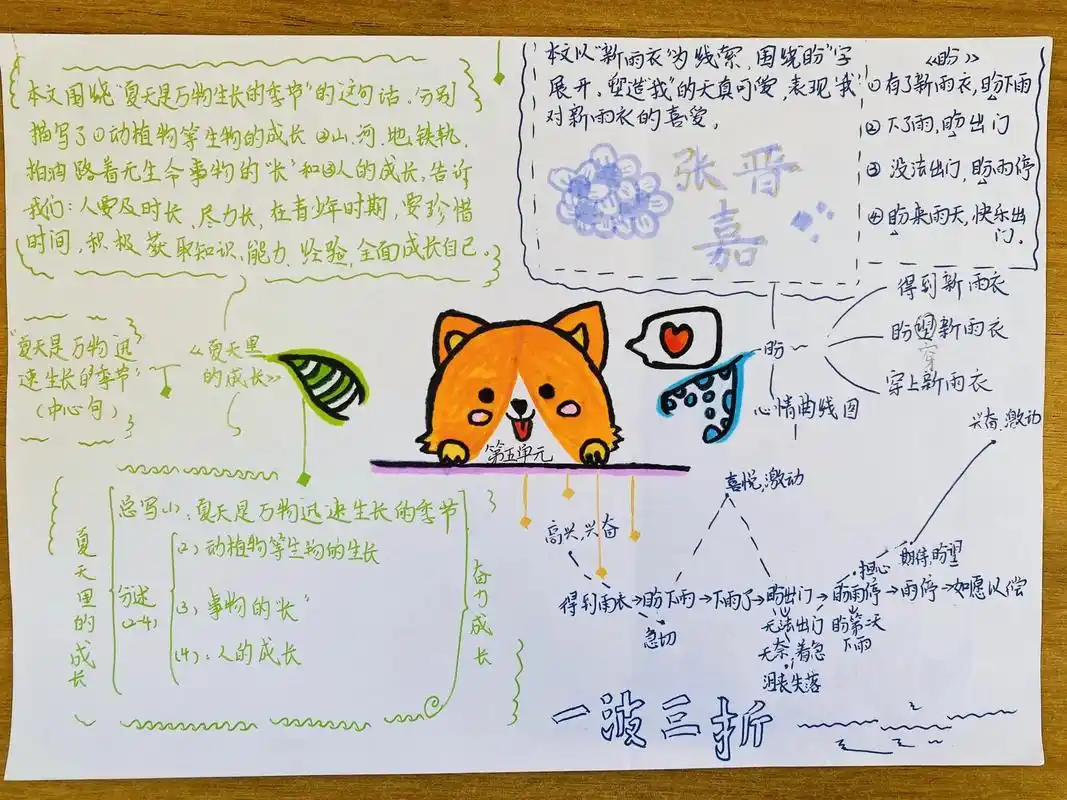 本文围绕"夏天是万物生长的季节"的这句话,分别
描写了①动植物等生物的成长②山、河、地、铁轨、
柏油路着无生命事物的"长"和③人的成长,告诉
我们:人要及时长、尽力长,在青少年时期,要珍惜
时间,积极获取知识、能力、经验,全面成长自己。
"夏天是万物迅
速生长的季节"
(中心句)
《夏天里
的成长》
夏天里的成长
总写(1):夏天是万物迅速生长的季节
分述
(2-4)
(2)动植物等生物的生长
(3):事物的"长"
(4):人的成长
奋力成长
第五单元
本文以"新雨衣"为线索,围绕"盼"字
展开,塑造"我"的天真可爱,表现"我"
对新雨衣的喜爱。
张晋
嘉
《盼》
①有了新雨衣,盼下雨
②下了雨,盼出门
③没法出门,盼雨停
④盼来雨天,快乐出
门。
盼
得到新雨衣
盼望新雨衣
穿
穿上新雨衣
心情曲线图
兴奋,激动
喜悦,激动
高兴,兴奋
担心
期待,盼望
得到雨衣→盼下雨→下雨了→盼出门→盼雨停→雨停→如愿以偿
急切
无法出门
无奈,着急
沮丧失落
盼第二天
下雨
一波三折